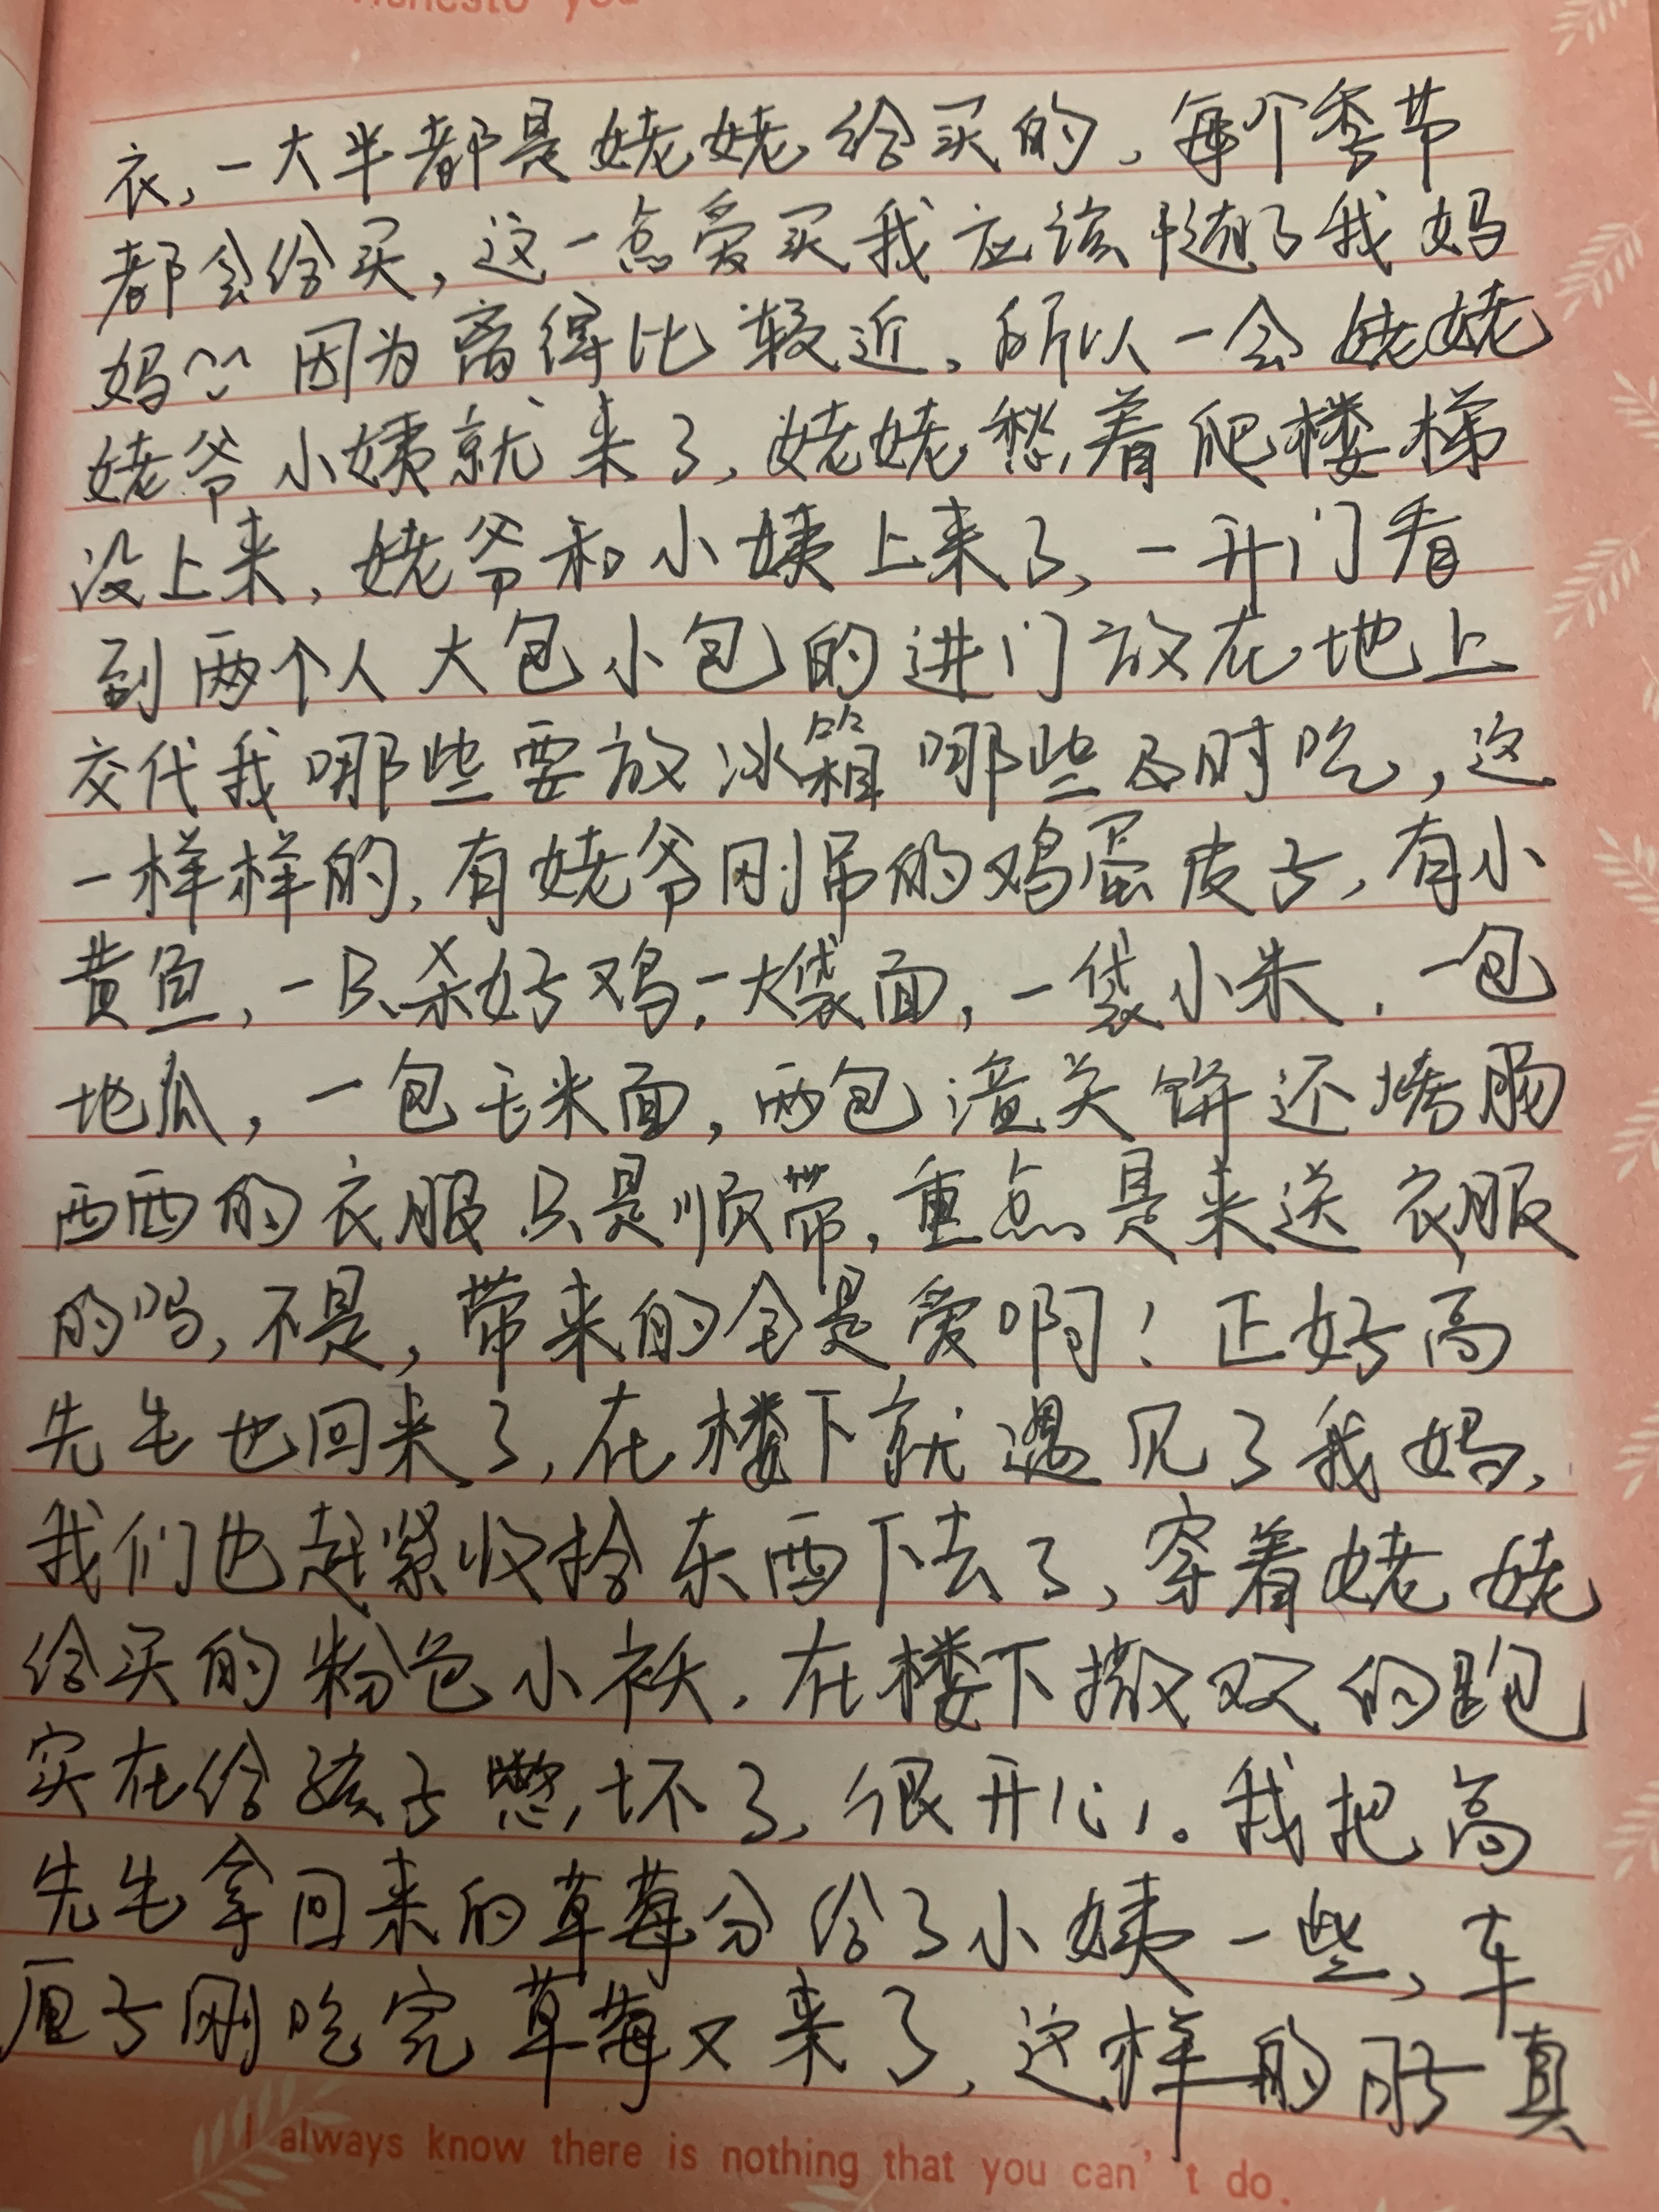 衣,一大半都是姥姥给买的,每个季节
都会给买,这一点爱买我应该随了我妈
妈 因为离得比较近,所以一会姥姥
姥爷小姨就来了,姥姥愁着爬楼梯
没上来,姥爷和小姨上来了,一开门看
到两个人大包小包的进门放在地上
交代我哪些要放冰箱哪些及时吃,这
一样样的,有姥爷刚吊的鸡蛋皮子,有小
黄鱼,一只杀好鸡,一大袋面,一袋小米,一包
地瓜,一包玉米面,两包潼关饼还烤肠
西西的衣服只是顺带,重点是来送衣服
的吗,不是,带来的全是爱啊!正好高
先生也回来了,在楼下就遇见了我妈,
我们也赶紧收拾东西下去了,穿着姥姥
给买的粉色小袄,在楼下撒欢的跑
实在给孩子憋坏了,很开心。我把高
先生拿回来的草莓分给了小姨一些,车
厘子刚吃完草莓又来了,这样的日子真
I always know there is nothing that you can't do.